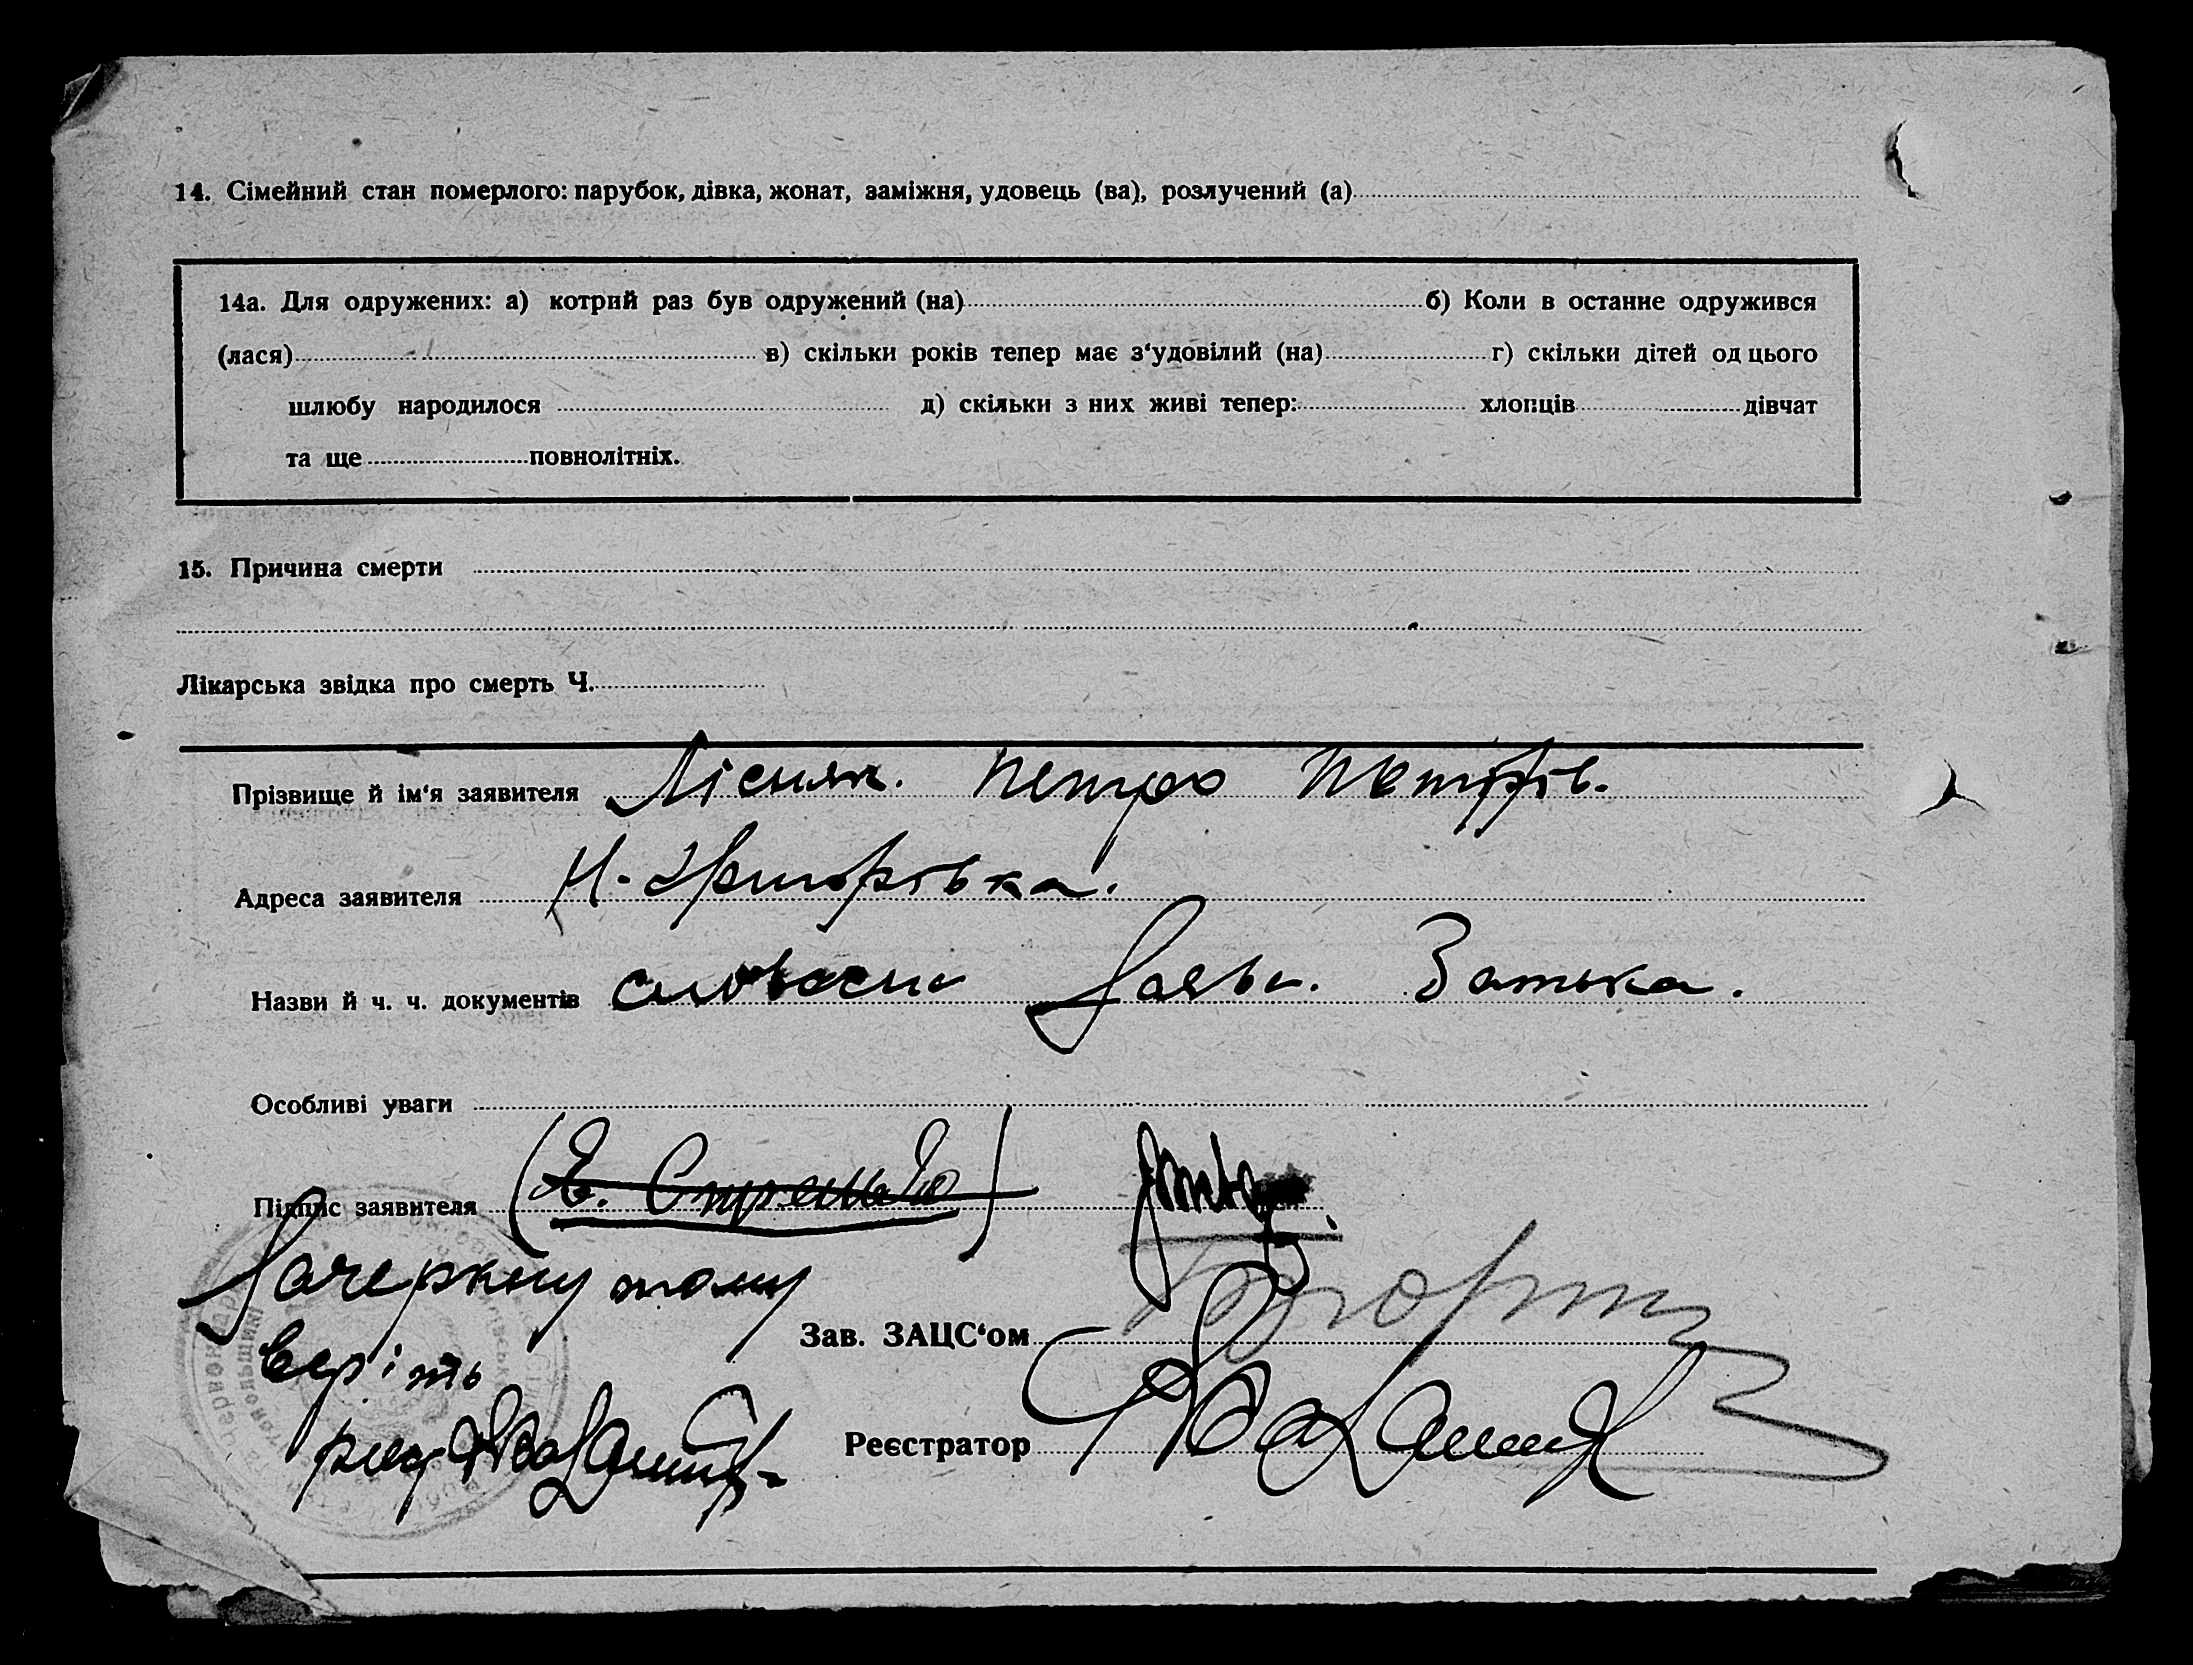 14. Сімейний стан померлого: парубок, дівка, жонат, заміжня, удовець (ва), розлучений (а)
14а. Для одружених: а) котрий раз був одружений (на) б) Коли в останне одружився
(лася) в) скільки років тепер має з‘удовілий (на) г) скільки дітей од цього
шлюбу народилося д) скільки з них живі тепер: хлопців дівчат
та ще повнолітніх.
15. Причина смерти
Лікарська звідка про смерть Ч.
Прізвище й ім‘я заявителя Лісняк. Петро Петрів.
Адреса заявителя Н-Григорівка.
Назви й ч. ч. документів словесни Заяви. Батька.
Особливі уваги
Підпис заявителя
Зачеркнутому
веріть
Зав. ЗАЦС‘ом
Реєстратор